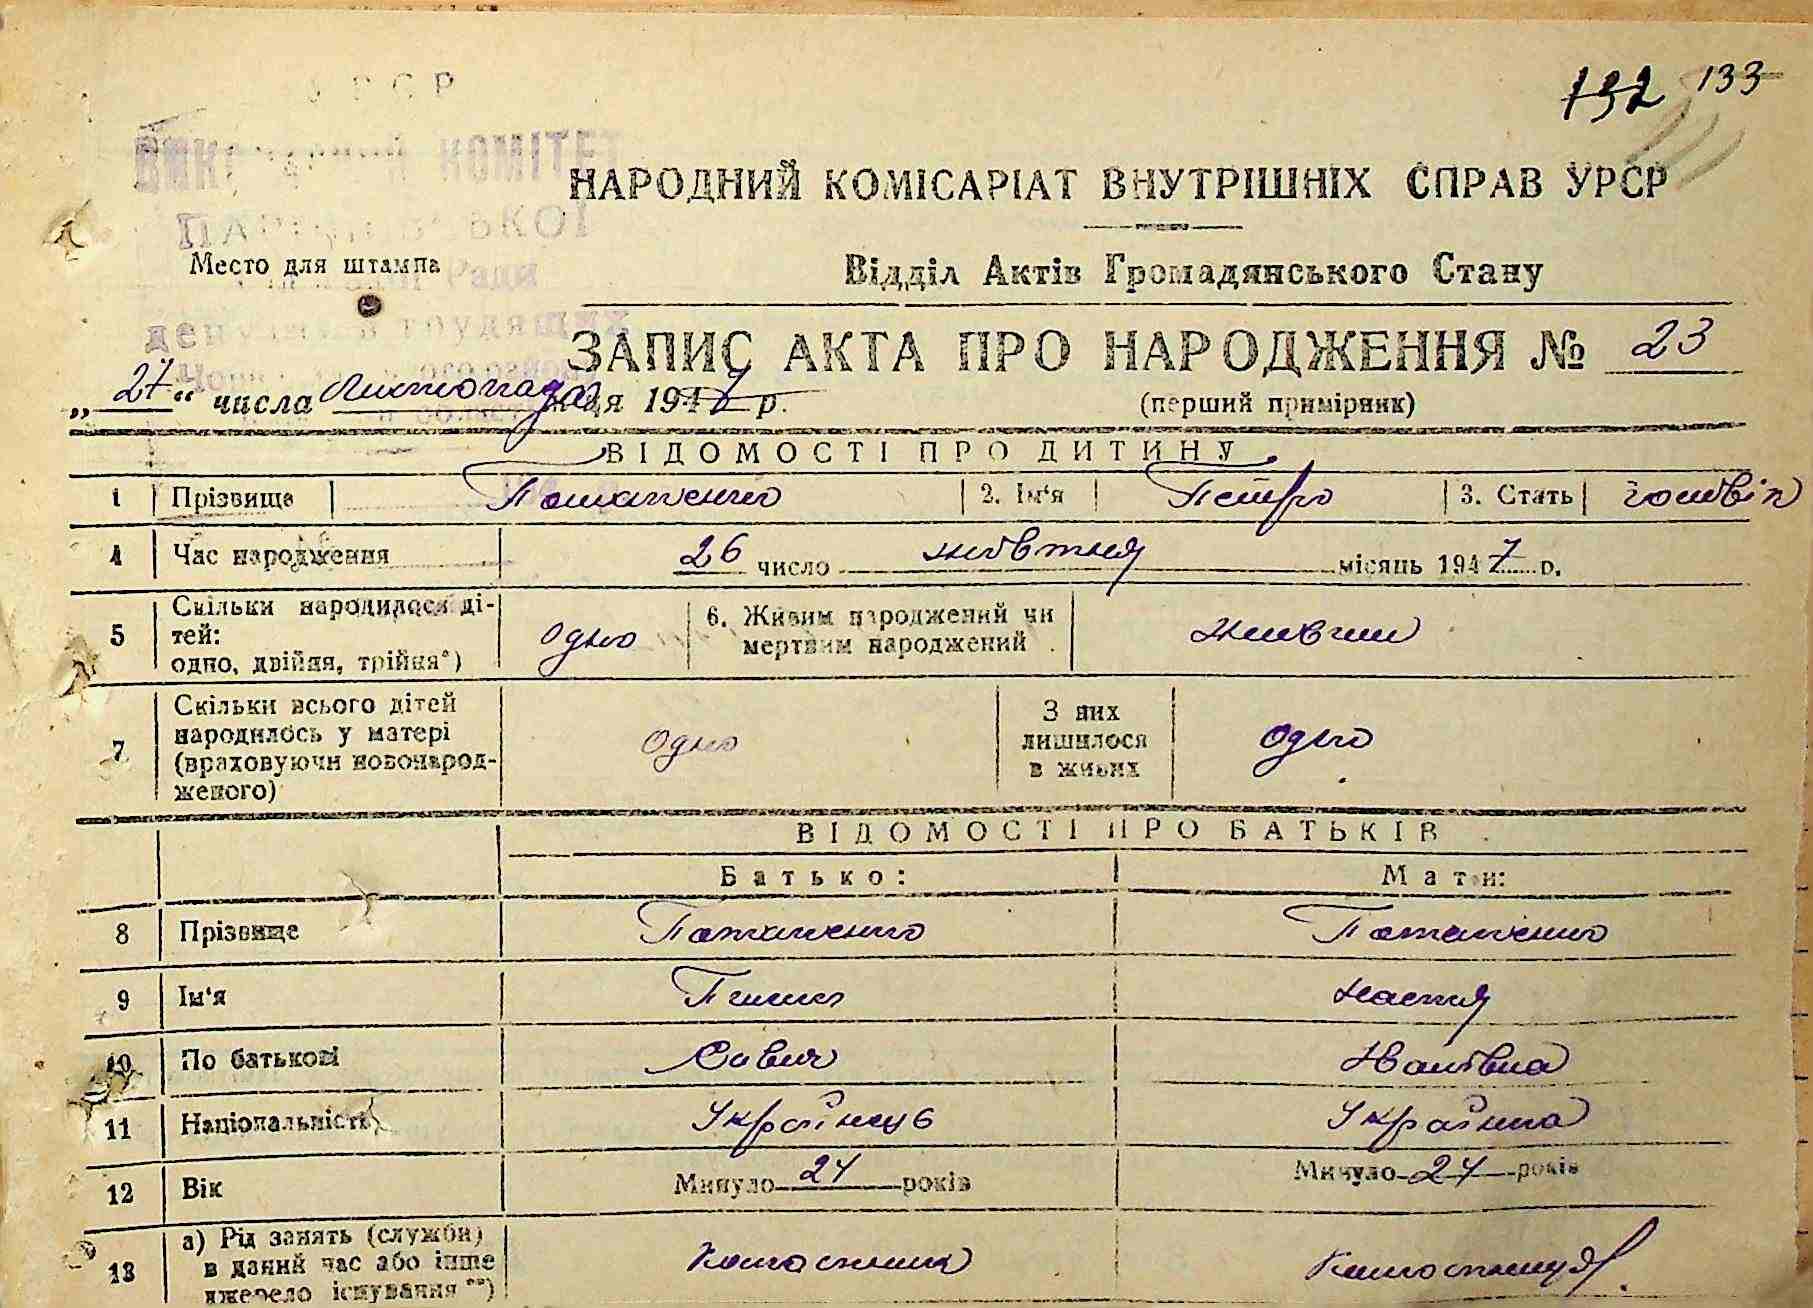 132 133
УРСР
ВИКОНАВЧИЙ КОМІТЕТ
НАРОДНИЙ КОМІСАРІАТ ВНУТРІШНІХ СПРАВ УРСР
Место для штампа
Ради
Відділ Актів Громадянського Стану
депутатів трудящих
ЗАПИС АКТА ПРО НАРОДЖЕННЯ № 23
„27“ числа Листопада м-ця 1947 р. (перший примірник)
ВІДОМОСТІ ПРО ДИТИНУ
1 Прізвище 2. Ім‘я Петро 3. Стать чоловік
4 Час народження 26 число жовтня місяць 1947 р.
5 Скільки народилося ді-
тей:
одно, двійня, трійня*) одно 6. Живим народжений чи
мертвим народжений живим
7 Скільки всього дітей
народилось у матері
(враховуючи новонарод-
женого) одно З них
лишилося
в живих одно
ВІДОМОСТІ ПРО БАТЬКІВ
Батько: Мати:
8 Прізвище
9 Ім‘я Настя
10 По батькові Савич Іванівна
11 Національність Українець Українка
12 Вік Минуло 24 років Минуло 24 років
13 а) Рід занять (служби)
в даний час або інше
джерело існування **) Колгоспник Колгоспниця